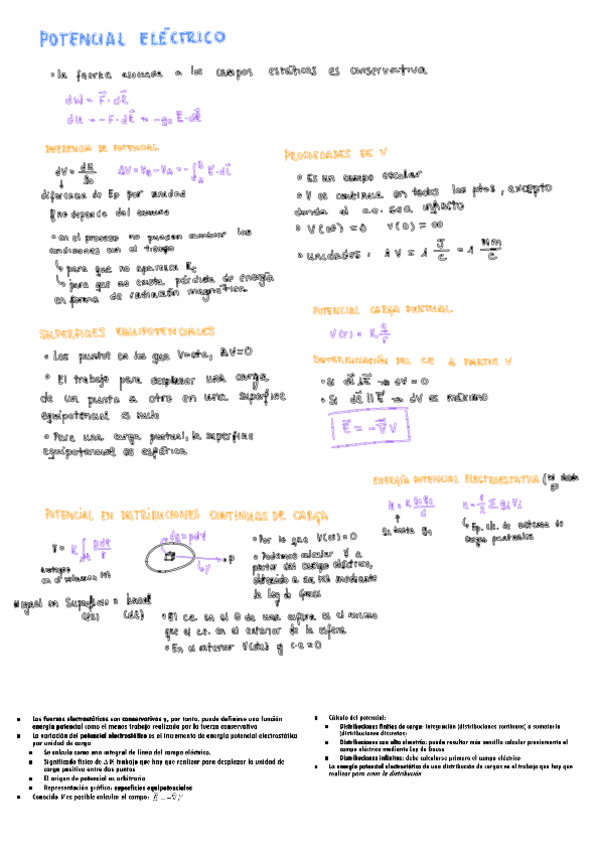 POTENCIAL ELÉCTRICO
• la fuerza asociada a los campos estáticos es conservativa
dW = F⃗·dl⃗
dU = -F⃗·dl⃗ = -q₀ E⃗·dl⃗
DIFERENCIA DE POTENCIAL
dV = dU/q₀ ΔV = V_B - V_A = -∫_A^B E⃗·dl⃗
diferencia de Ep por unidad
q no depende del camino
• en el proceso no pueden cambiar las
condiciones con el tiempo
↳ para que no aparezca Ec
↳ para que no exista pérdida de energía
en forma de radiación magnética
SUPERFICIES EQUIPOTENCIALES
• Los puntos en los que V=cte, ΔV=0
• El trabajo para desplazar una carga
de un punto a otro en una superficie
equipotencial es nulo
• Para una carga puntual, la superficie
equipotencial es esférica
PROPIEDADES DE V
• Es un campo escalar
• V es continua en todos los ptos, excepto
donde el c.e. sea infinito
• V(∞) = 0 V(0) = ∞
• unidades: 1 V = 1 J/C = 1 Nm/C
POTENCIAL CARGA PUNTUAL
V(r) = K q/r
DETERMINACIÓN DEL CE A PARTIR V
• Si dl⃗ ⊥ E⃗ → dV = 0
• Si dl⃗ || E⃗ → dV es máximo
E⃗ = -∇⃗V
ENERGÍA POTENCIAL ELECTROSTÁTICA
↳ Ep. elc. de sistema de
cargas puntuales
POTENCIAL EN DISTRIBUCIONES CONTINUAS DE CARGA
dq = ρdV
P
• Por lo que V(∞) = 0
• Podemos calcular V a
partir del campo eléctrico,
obtenido a su vez mediante
la ley de Gauss
Igual en Superficie o lineal
• El c.e. en el θ de una esfera es el mismo
que el c.e. en el exterior de la esfera
• En el interior V(cte) y c.e = 0
▪ Las fuerzas electrostáticas son conservativas y, por tanto, puede definirse una función
energía potencial como el menos trabajo realizado por la fuerza conservativa
▪ La variación del potencial electrostático es el incremento de energía potencial electrostática
por unidad de carga
▪ Se calcula como una integral de línea del campo eléctrico.
▪ Significado físico de ΔV: trabajo que hay que realizar para desplazar la unidad de
carga positiva entre dos puntos
▪ El origen de potencial es arbitrario
▪ Representación gráfica: superficies equipotenciales
▪ Conocido V es posible calcular el campo: E⃗ = -∇⃗V
▪ Cálculo del potencial:
▪ Distribuciones finitas de carga: integración (distribuciones continuas) o sumatorio
(distribuciones discretas)
▪ Distribuciones con alta simetría: puede resultar más sencillo calcular previamente el
campo eléctrico mediante Ley de Gauss
▪ Distribuciones infinitas: debe calcularse primero el campo eléctrico
▪ La energía potencial electrostática de una distribución de cargas es el trabajo que hay que
realizar para crear la distribución